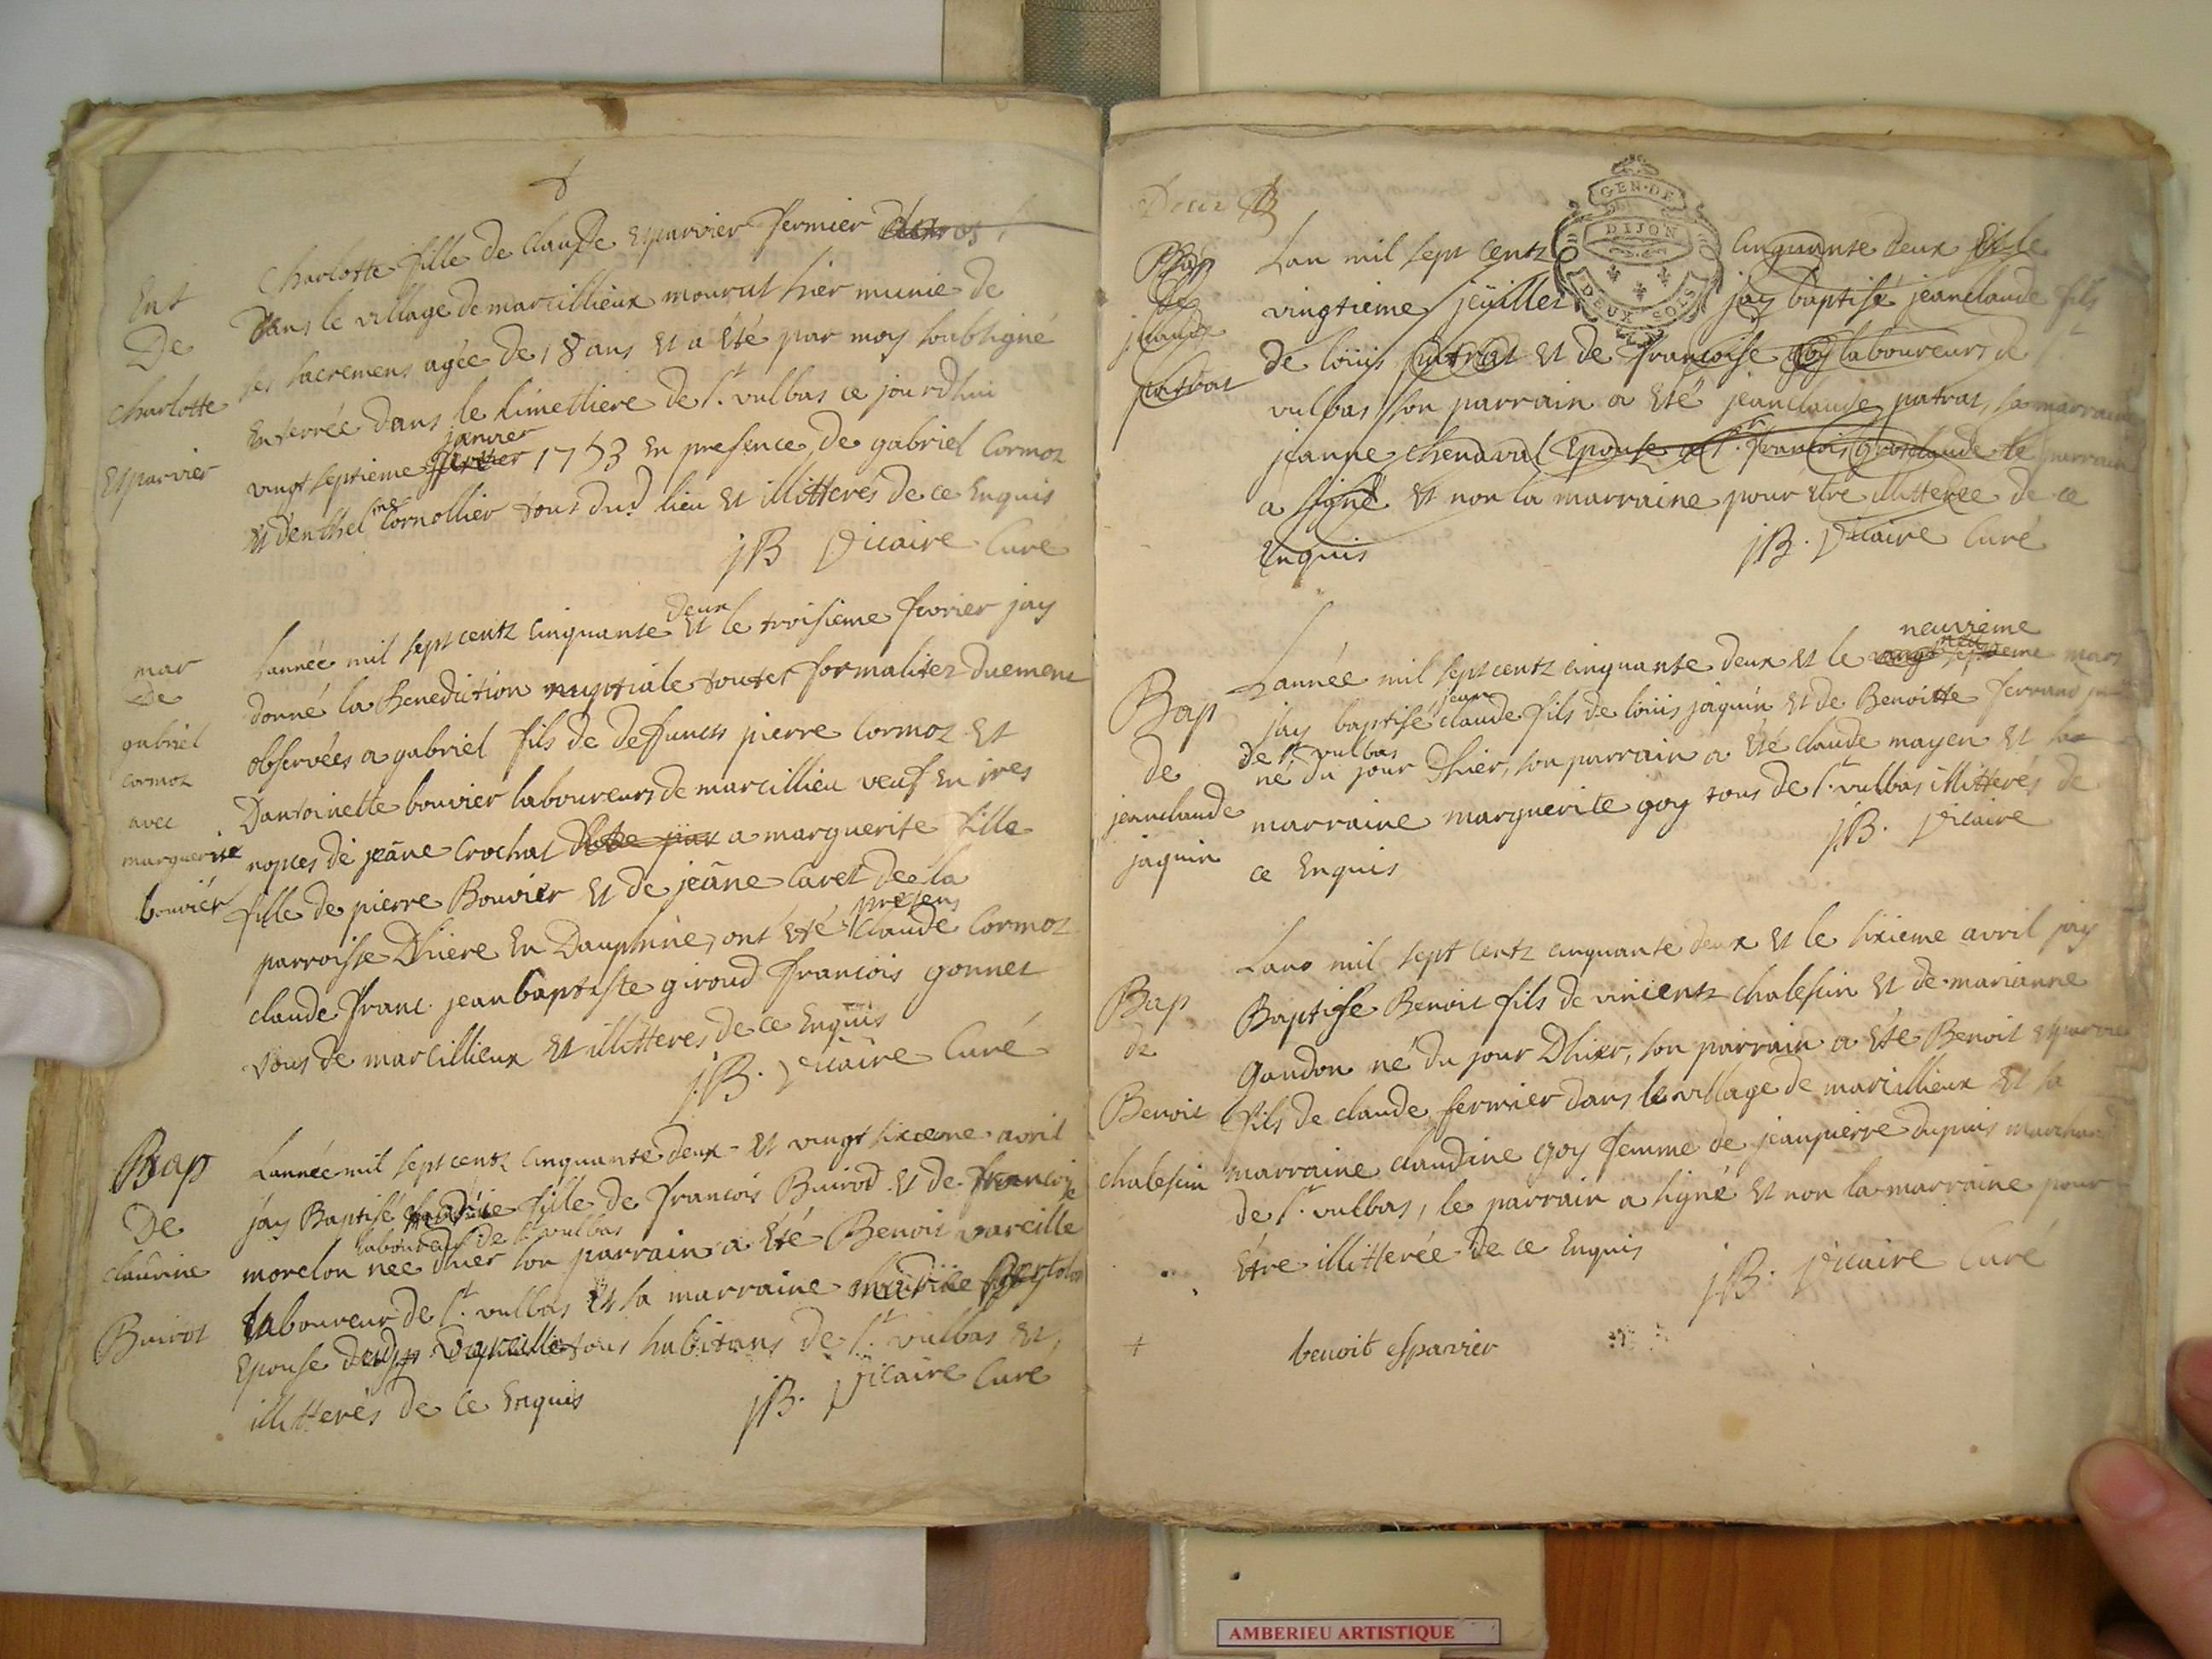 Ent
De
Charlotte
Esparvier
Charlotte fille de claude Esparvier fermier
Dans le village de marcillieux mourut hier munie de
ses sacremens agée de 18 ans Et a été par moy soubsigné
Enterrée dans le simettiere de st. vulbas ce jourdhui
janvier
vingt septieme 1753 En presence de gabriel Cormoz
Cornollier tous dud lieu Et illitterés de ce Enquis
jB Vicaire Curé
mar
De
gabriel
cormoz
avec
marguerite
bouvier
deux
Lannée mil sept centz Cinquante Et le troisieme fevrier jay
donné la Benediction nuptiale toutes formalitez duement
observées a gabriel fils de deffuncts pierre Cormoz Et
Dantoinette bouvier laboureurs de marcillieu veuf En
nopces de jeãne Crochat a marguerite fille
fille de pierre Bouvier Et de jeãne Caret de la
presens
parroisse Dhiere En Dauphiné, ont été Claude Cormoz
claude franc. jean baptiste giroud francois gonnet
tous de marcillieux Et illitteres de ce Enquis
jB. Vicaire Curé
Bap
De
claudine
Buirot
Lannée mil sept centz Cinquante deux Et vingt sixieme avril
jay Baptisé fille de francois Buirod Et de francoise
laboureur de st vulbas
morelon née dhier son parrain a été Benoit vareille
laboureur de st. vulbas Et sa marraine
Epouse tous habitans de st vulbas Et
illitterés de Ce Enquis
jB. Vicaire Curé
Bap
de
jclaude
patrat
GEN. DE
DIJON
DEUX SOLS
Lan mil sept Centz Cinquante deux Et le
vingtieme jüillet jay baptisé jeanclaude fils
de loüis patrat Et de francoise goy laboureurs de
vulbas son parrain a été jeanclaude patrat, sa marraine
jeanne chenaval Epouse francois Grosclaude le parrain
a signé Et non la marraine pour etre illitterée de ce
Enquis
jB. Vicaire Curé
Bap
de
jeanclaude
jaquin
neuvieme
Lannée mil sept centz cinquante deux Et le mars
jean
jay baptisé claude fils de loüis jaquin Et de Benoitte ferrand
de st vulbas
né du jour Dhier, son parrain a été claude mayen Et sa
marraine marguerite goy tous de st. vulbas illitterés de
ce Enquis
jB. Vicaire
Bap
de
Benoit
chalessin
Lann mil sept Centz cinquante deux Et le sixieme avril jay
Baptise Benoit fils de vincentz chalessin Et de marianne
Gaudon né du jour Dhier, son parrain a été Benoit
fils de claude fermier dans le village de marcillieux Et sa
marraine claudine goy femme de jeanpierre dupuis marchand
de st. vulbas, le parrain a signé Et non la marraine pour
être illitterée de ce Enquis
jB. Vicaire Curé
+ benoit esparvier
AMBERIEU ARTISTIQUE